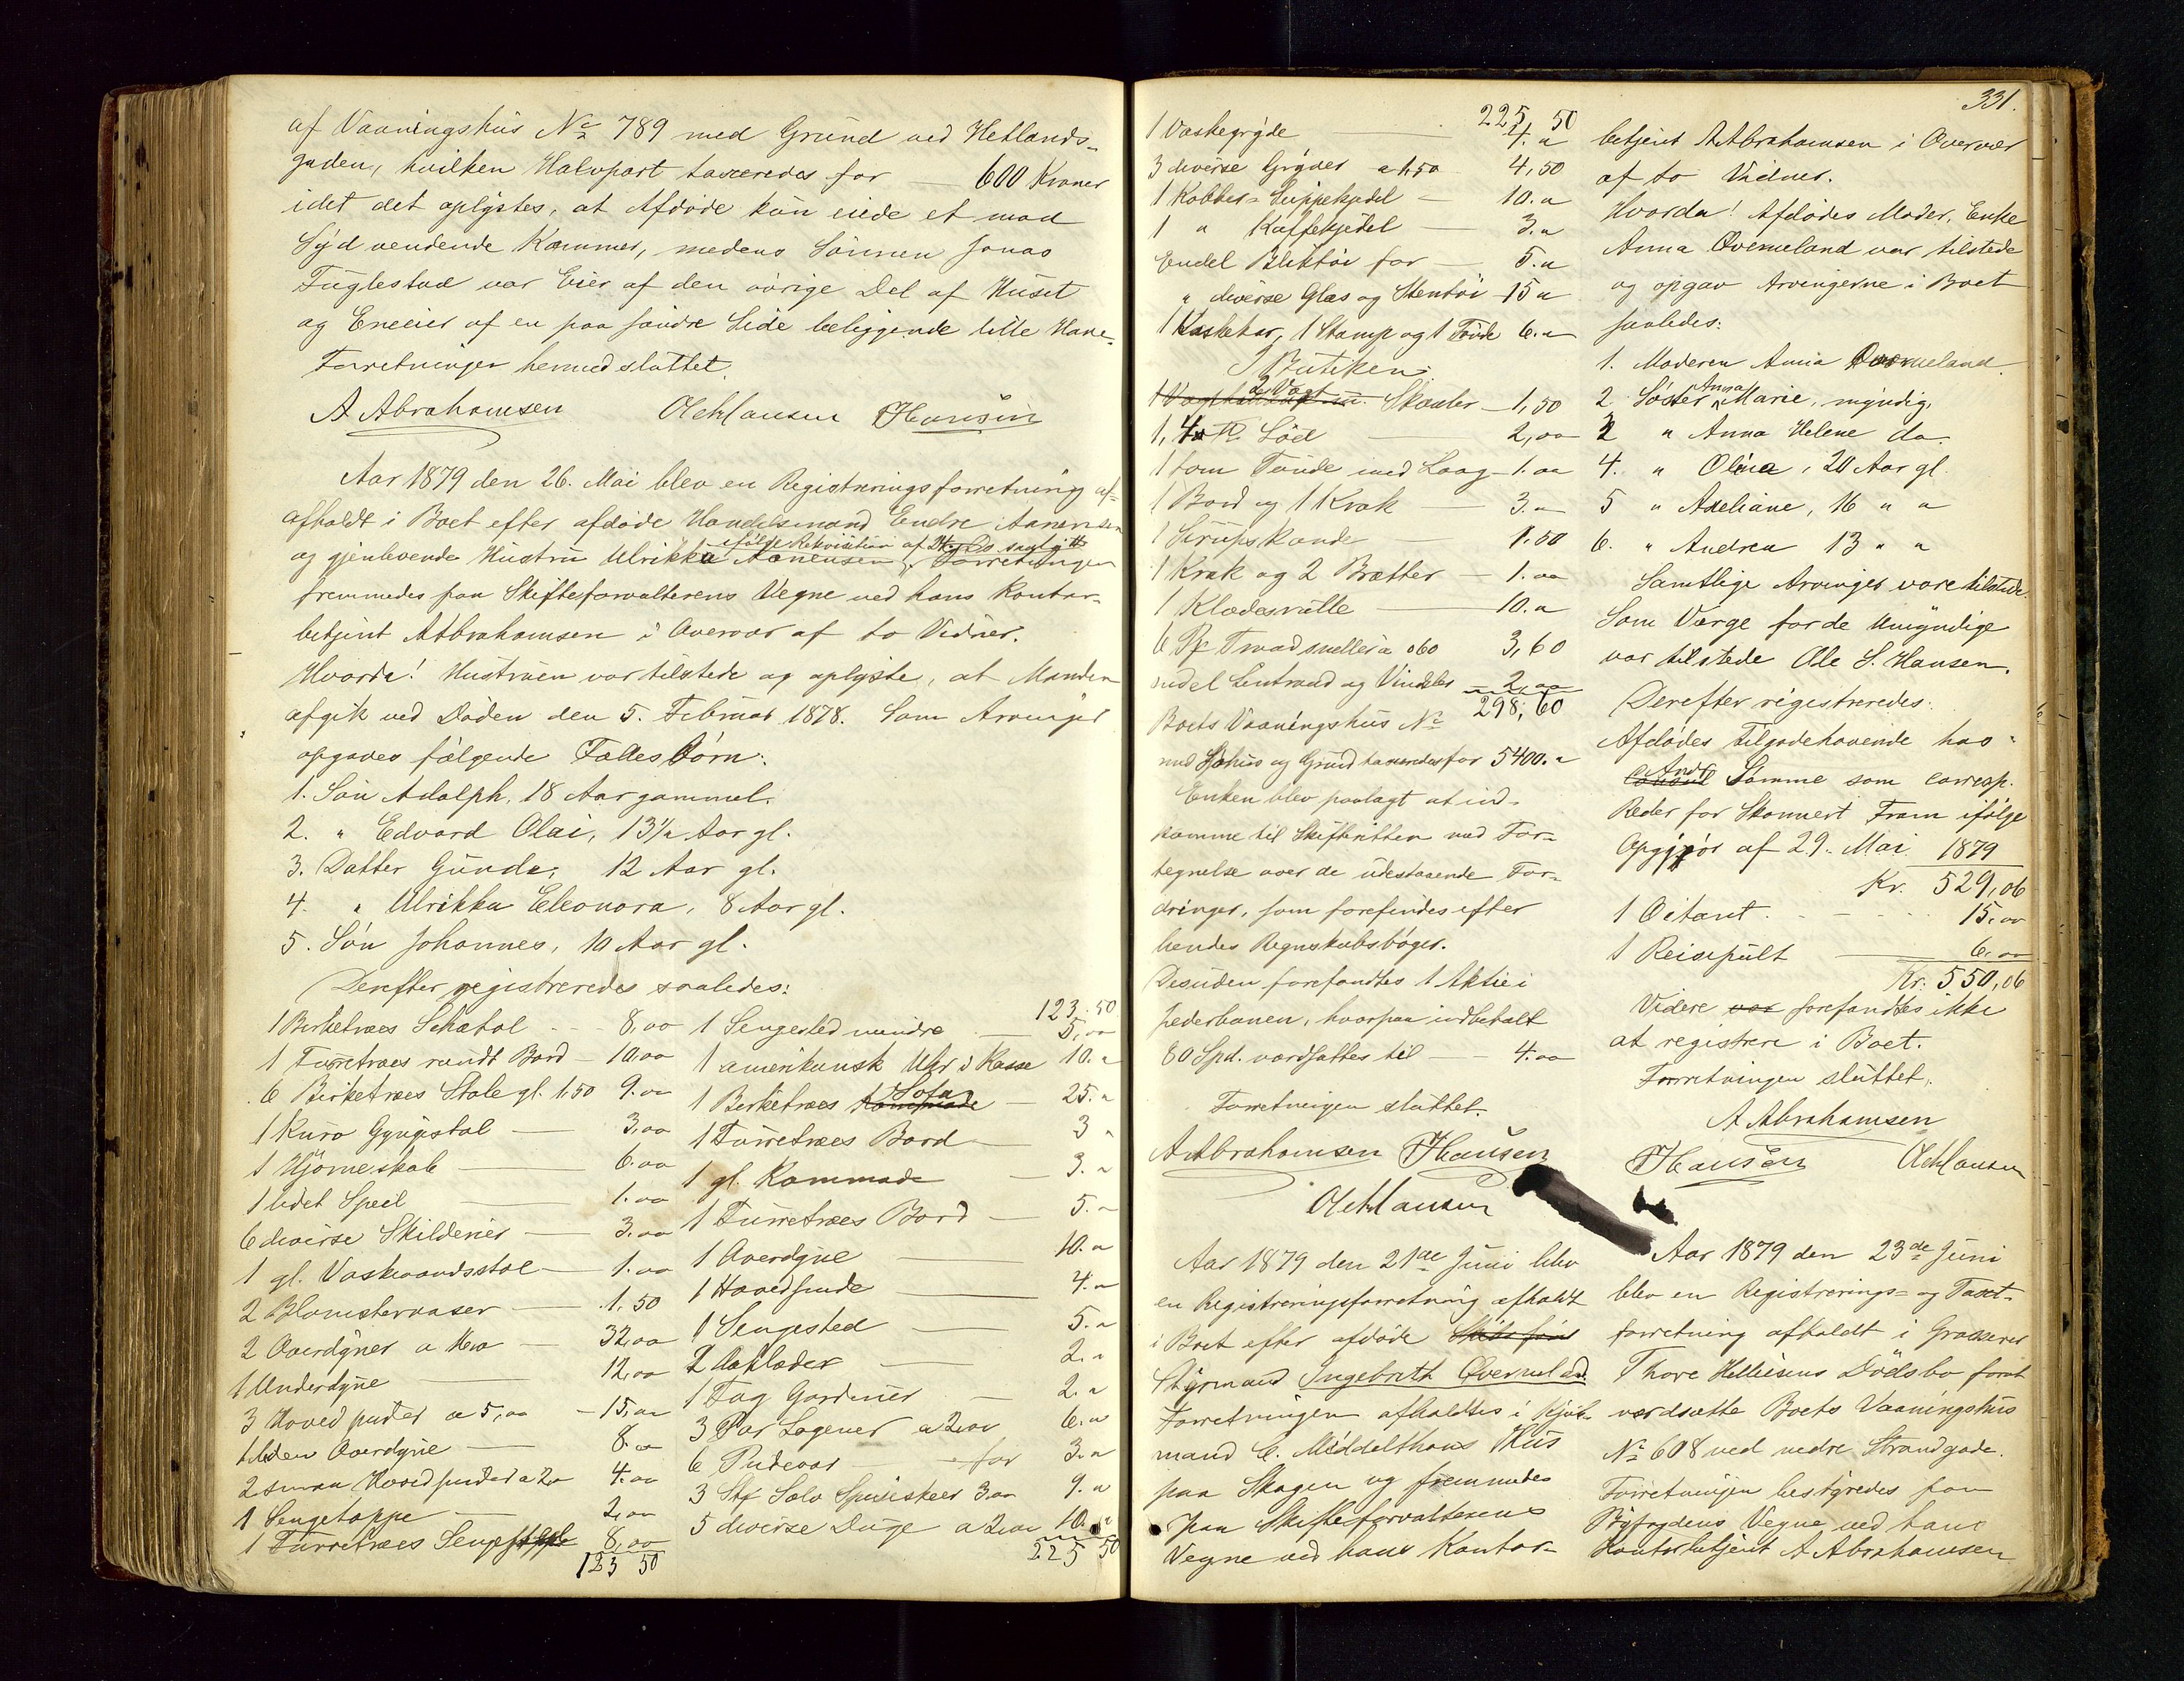 af Vaaningshus No 789 med Grund ved Hetlands-
gaden, hvilken Halvpart taxeredes for — 600 Kroner
idet det oplystes, at Afdøde kun eiede et mod
Syd vendende Kammer, medens Sønnen Jonas
Fuglestad var Eier af den øvrige Del af Huset
og Eneeier af en paa søndre Side beliggende lille Have.
Forretningen hermed sluttet.
A Abrahamsen OChHansen THansen
Aar 1879 den 26. Mai blev en Registreringsforretning af-
afholdt i Boet efter afdøde Handelsmand Endre Aanensen
ifølge Rekvisition af 24. ds
og gjenlevende Hustru Ulrikka Aanensen. Forretningen
fremmedes paa Skifteforvalterens Vegne ved hans Kontor-
betjent A Abrahamsen i Overvær af to Vidner.
Hvorda! Hustruen var tilstede og oplyste, at Manden
afgik ved Døden den 5. Februar 1878. Som Arvinger
opgaves følgende Fælles Børn:
1. Søn Adolph, 18 Aar gammel.
2. " Edvard Olai, 13½ Aar gl.
3. Datter Gunda, 12 Aar gl.
4. " Ulrikka Eleonora, 8 Aar gl.
5. Søn Johannes, 10 Aar gl.
Derefter registreredes saaledes:
1 Birketræes Schatol - - 8,00
1 Furretræes rundt Bord — 10,00
6 Birketræes Stole gl. 1.50 9.00
1 Kurv Gyngestol — 3,00
1 Hjørneskab — 6.00
1 lidet Speil — 1.00
6 diverse Skilderier — 3.00
1 gl. Vaskevandsstol — 1.00
2 Blomstervaser — 1,50
2 Overdyner a 16.00 — 32,00
1 Underdyne — 12,00
3 Hovedpuder a 5,00 — 15,00
1 liden Overdyne — 8.00
2 smaa Hovedpuder a 2.00 4.00
1 Sengetæppe — 2,00
1 Furretræes Sengested 8,00
123 50
123 50
1 Sengested mindre — 5,00
1 amerikansk Uhr i Kasse 10. "
1 Birketræes Kommode Sofa — 25. "
1 Furretræes Bord — 3 "
1 gl. Kommode — 3. "
1 Furretræes Bord — 5. "
1 Overdyne — 10. "
1 Hovedpude — 4. "
1 Sengested — 5. "
2 Aaklæder — 2. "
1 Fag Gardiner — 2. "
3 Par Lagener a 2.00 6. "
6 Pudevar — for 3. "
3 Stk Sølv Spiseskeer 3.00 9. "
5 diverse Duge a 2.00 10. "
225 50
225, 50
1 Vaskegryde — 4. "
3 diverse Gryder a 1,50 4,50
1 Kobber-Suppekjedel — 10. "
1 " Kaffekjedel — 3. "
Endel Bliktøi for — 5. "
" diverse Glas og Stentøi — 15 "
1 Vaskekar, 1 Stamp og 1 Tønde 6. "
I Butiken:
2 de Vægt
Skaaler — 1,50
Lod — 2,00
1 tom Tønde med Laag — 1.00
1 Bord og 1 Krak — 3. "
1 Sirupskande — 1.50
1 Krak og 2 Brætter — 1.00
1 Klædesrulle — 10. "
6 Pk Traadsneller a 060 3,60
endel Lintraad og Vindsler — 2,00
298, 60
Boets Vaaningshus No
med Søhus og Grund taxeredes for 5400. "
Enken blev paalagt at ind-
komme til Skifteretten med For-
tegnelse over de udestaaende For-
dringer, som forefindes efter
hendes Regnskabsbøger.
Desuden forefandtes 1 Aktie i
Jæderbanen, hvorpaa indbetalt
80 Spd. værdsattes til — 4.00
Forretningen sluttet.
A Abrahamsen THansen
OChHansen
Aar 1879 den 21de Juni blev
en Registreringsforretning afholdt
i Boet efter afdøde Skibsfør
Styrmand Ingebrith Qvemeland.
Forretningen afholdtes i Kjøb-
mand C. Middelthons Hus
paa Skagen og fremmedes
paa Skifteforvalterens
Vegne ved hans Kontor-
331.
betjent A Abrahamsen i Overvær
af to Vidner.
Hvorda! Afdødes Moder, Enke
Anna Qvemeland var tilstede
og opgav Arvingerne i Boet
saaledes:
1. Moderen Anna Qvemeland
2 Søster Anna Marie, myndig,
3 " Anna Helene do.
4. " Olina, 20 Aar gl.
5 " Axeliane, 16 " "
6. " Andrea 13 " "
Samtlige Arvinger vare tilstede.
Som Værge for de Umyndige
var tilstede Ole S. Hansen.
Derefter registreredes:
Afdødes Tilgodehavende hos
Consul Andr. Tomme som corresp.
Reder for Skonnert Fram ifølge
Opgjør af 29. Mai 1879
Kr. 529,06
1 Octant — 15.00
1 Reisepult — 6.00
Kr. 550,06
Videre var forefandtes ikke
at registrere i Boet.
Forretningen sluttet.
A Abrahamsen
THansen OChHansen
Aar 1879 den 23de Juni
blev en Registrerings- og Taxt-
forretning afholdt i Grosserer
Thore Helliesens Dødsbo forat
værdsætte Boets Vaaningshus
No 608 ved nedre Strandgade.
Forretningen bestyredes paa
Byfogdens Vegne ved hans
Kontorbetjent A Abrahamsen